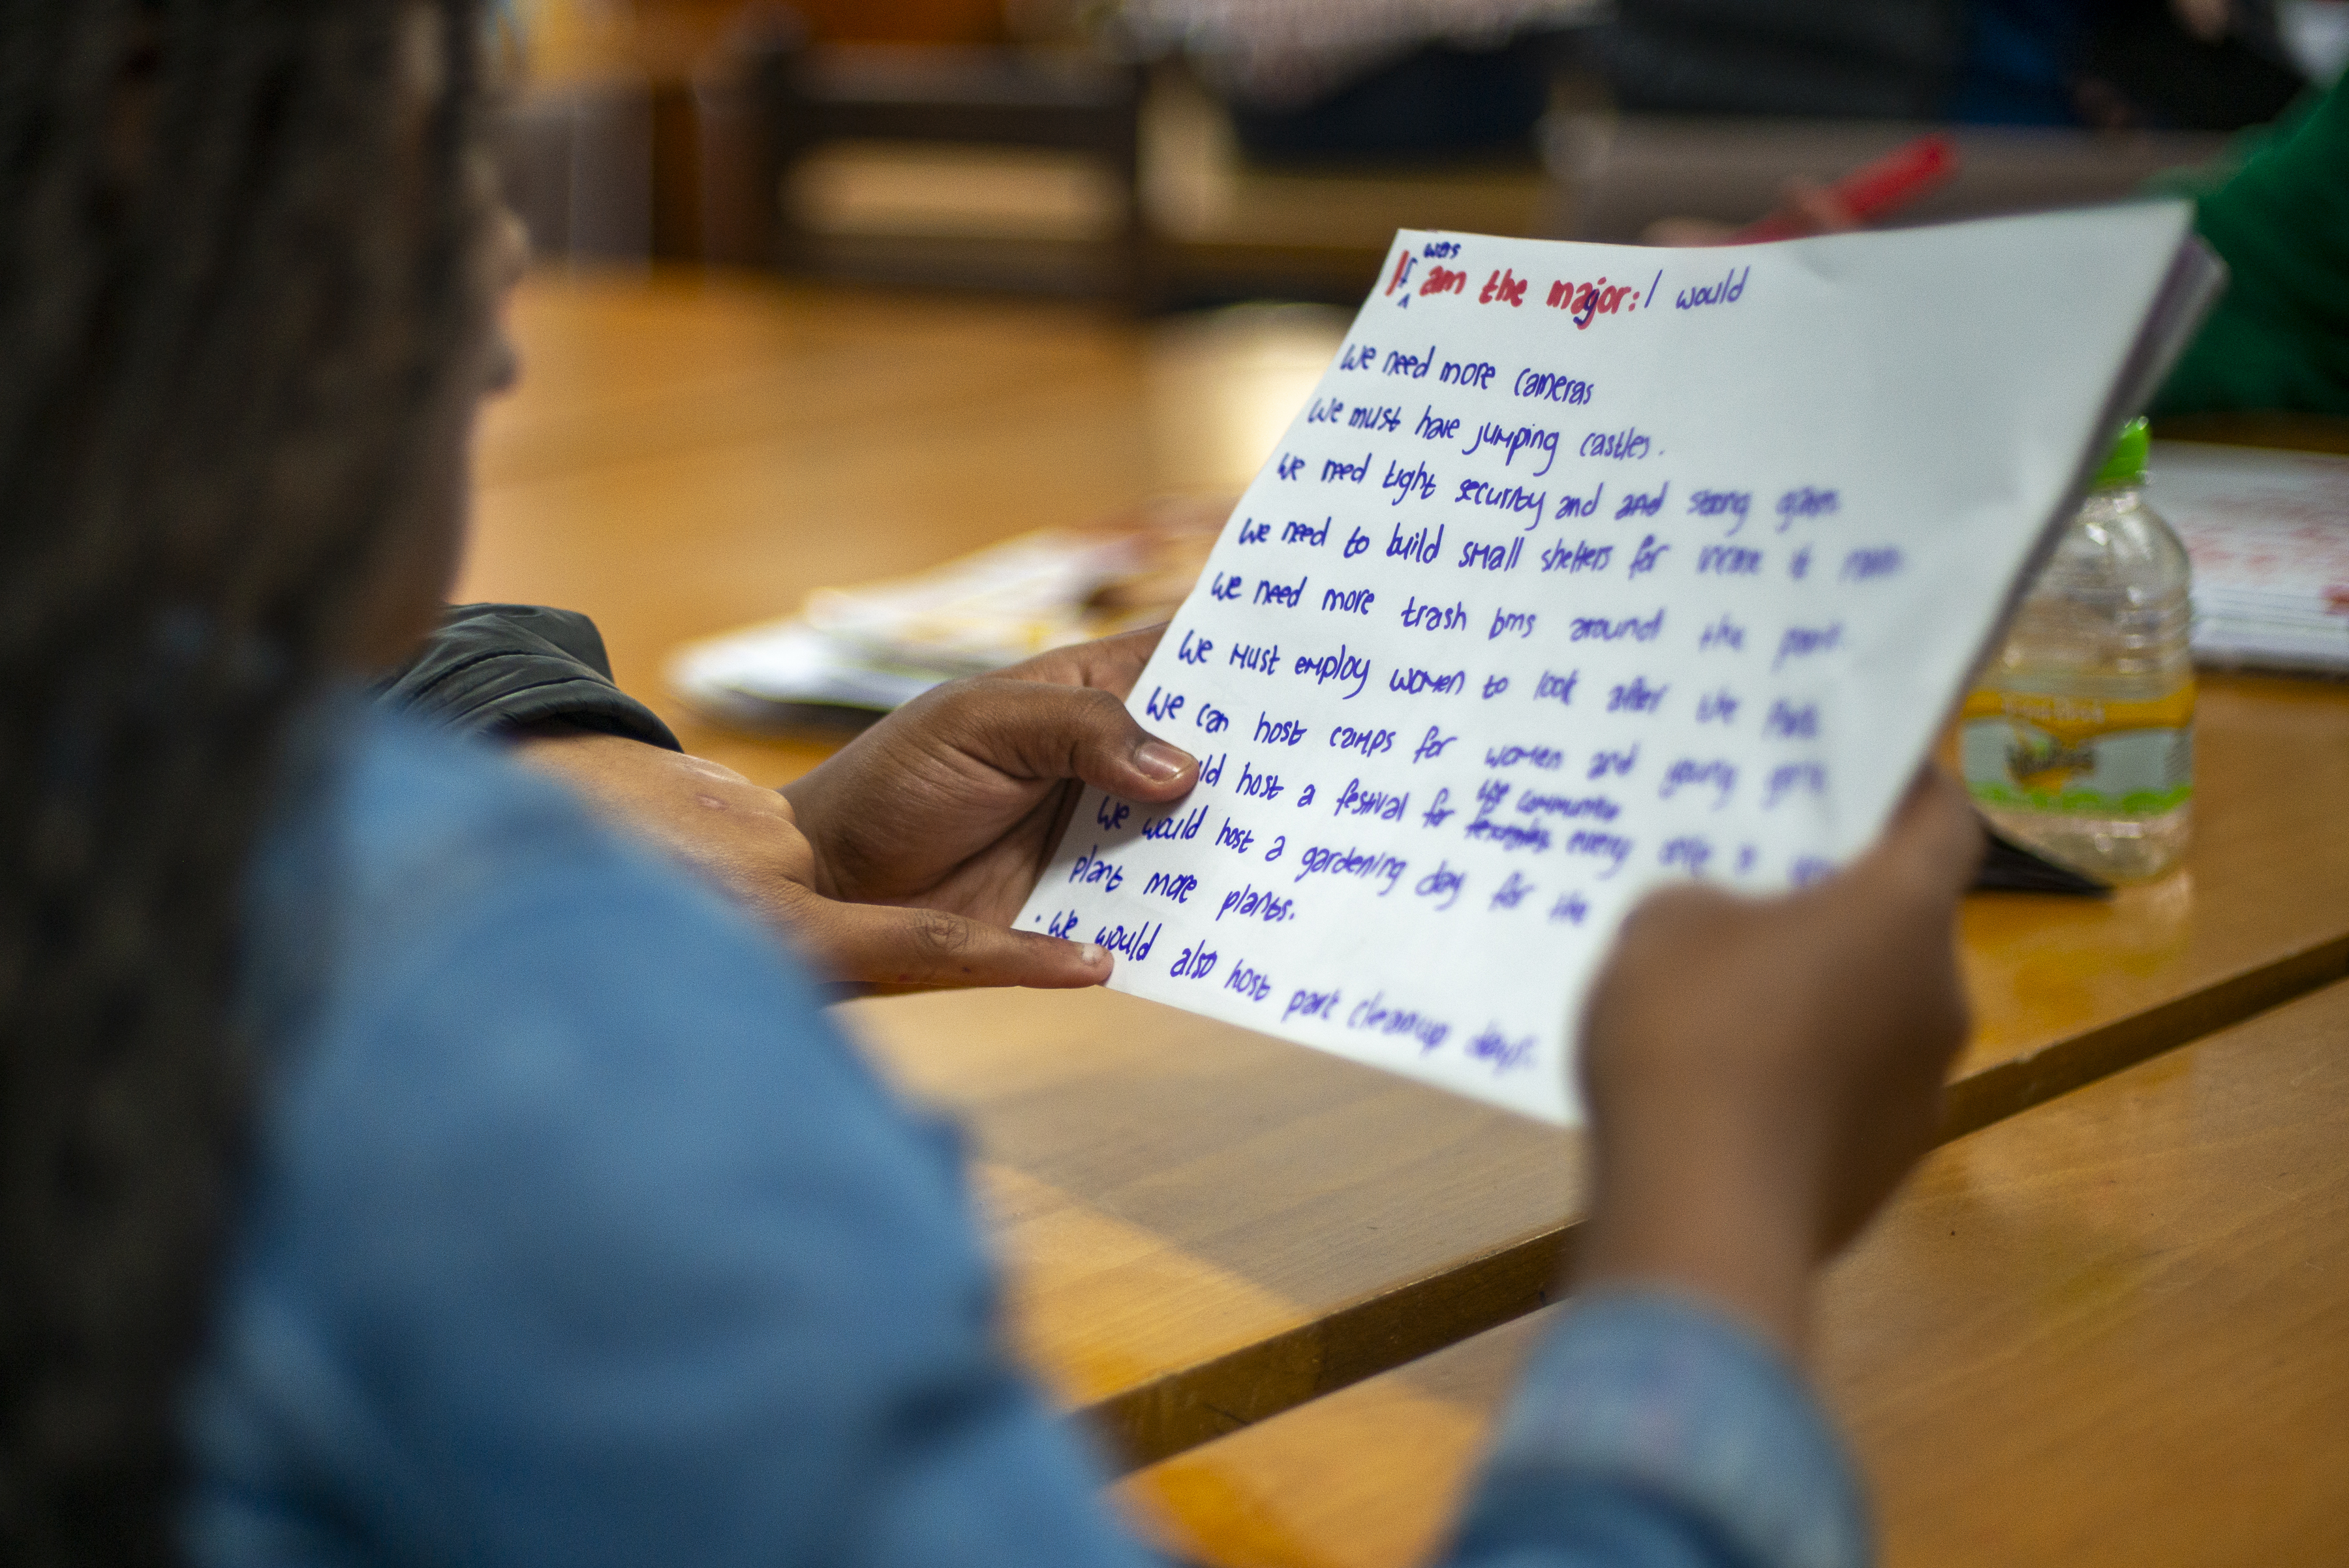 was
If am the major: I would
We need more cameras
We must have jumping castles.
We need tight security and and strong
We need to build small shelters for
We need more trash bins around the
We must employ women to look after the
We can host camps for women and young girls
host a festival for the community every
We would host a gardening day for the
plant more plants.
. We would also host park cleanup days.